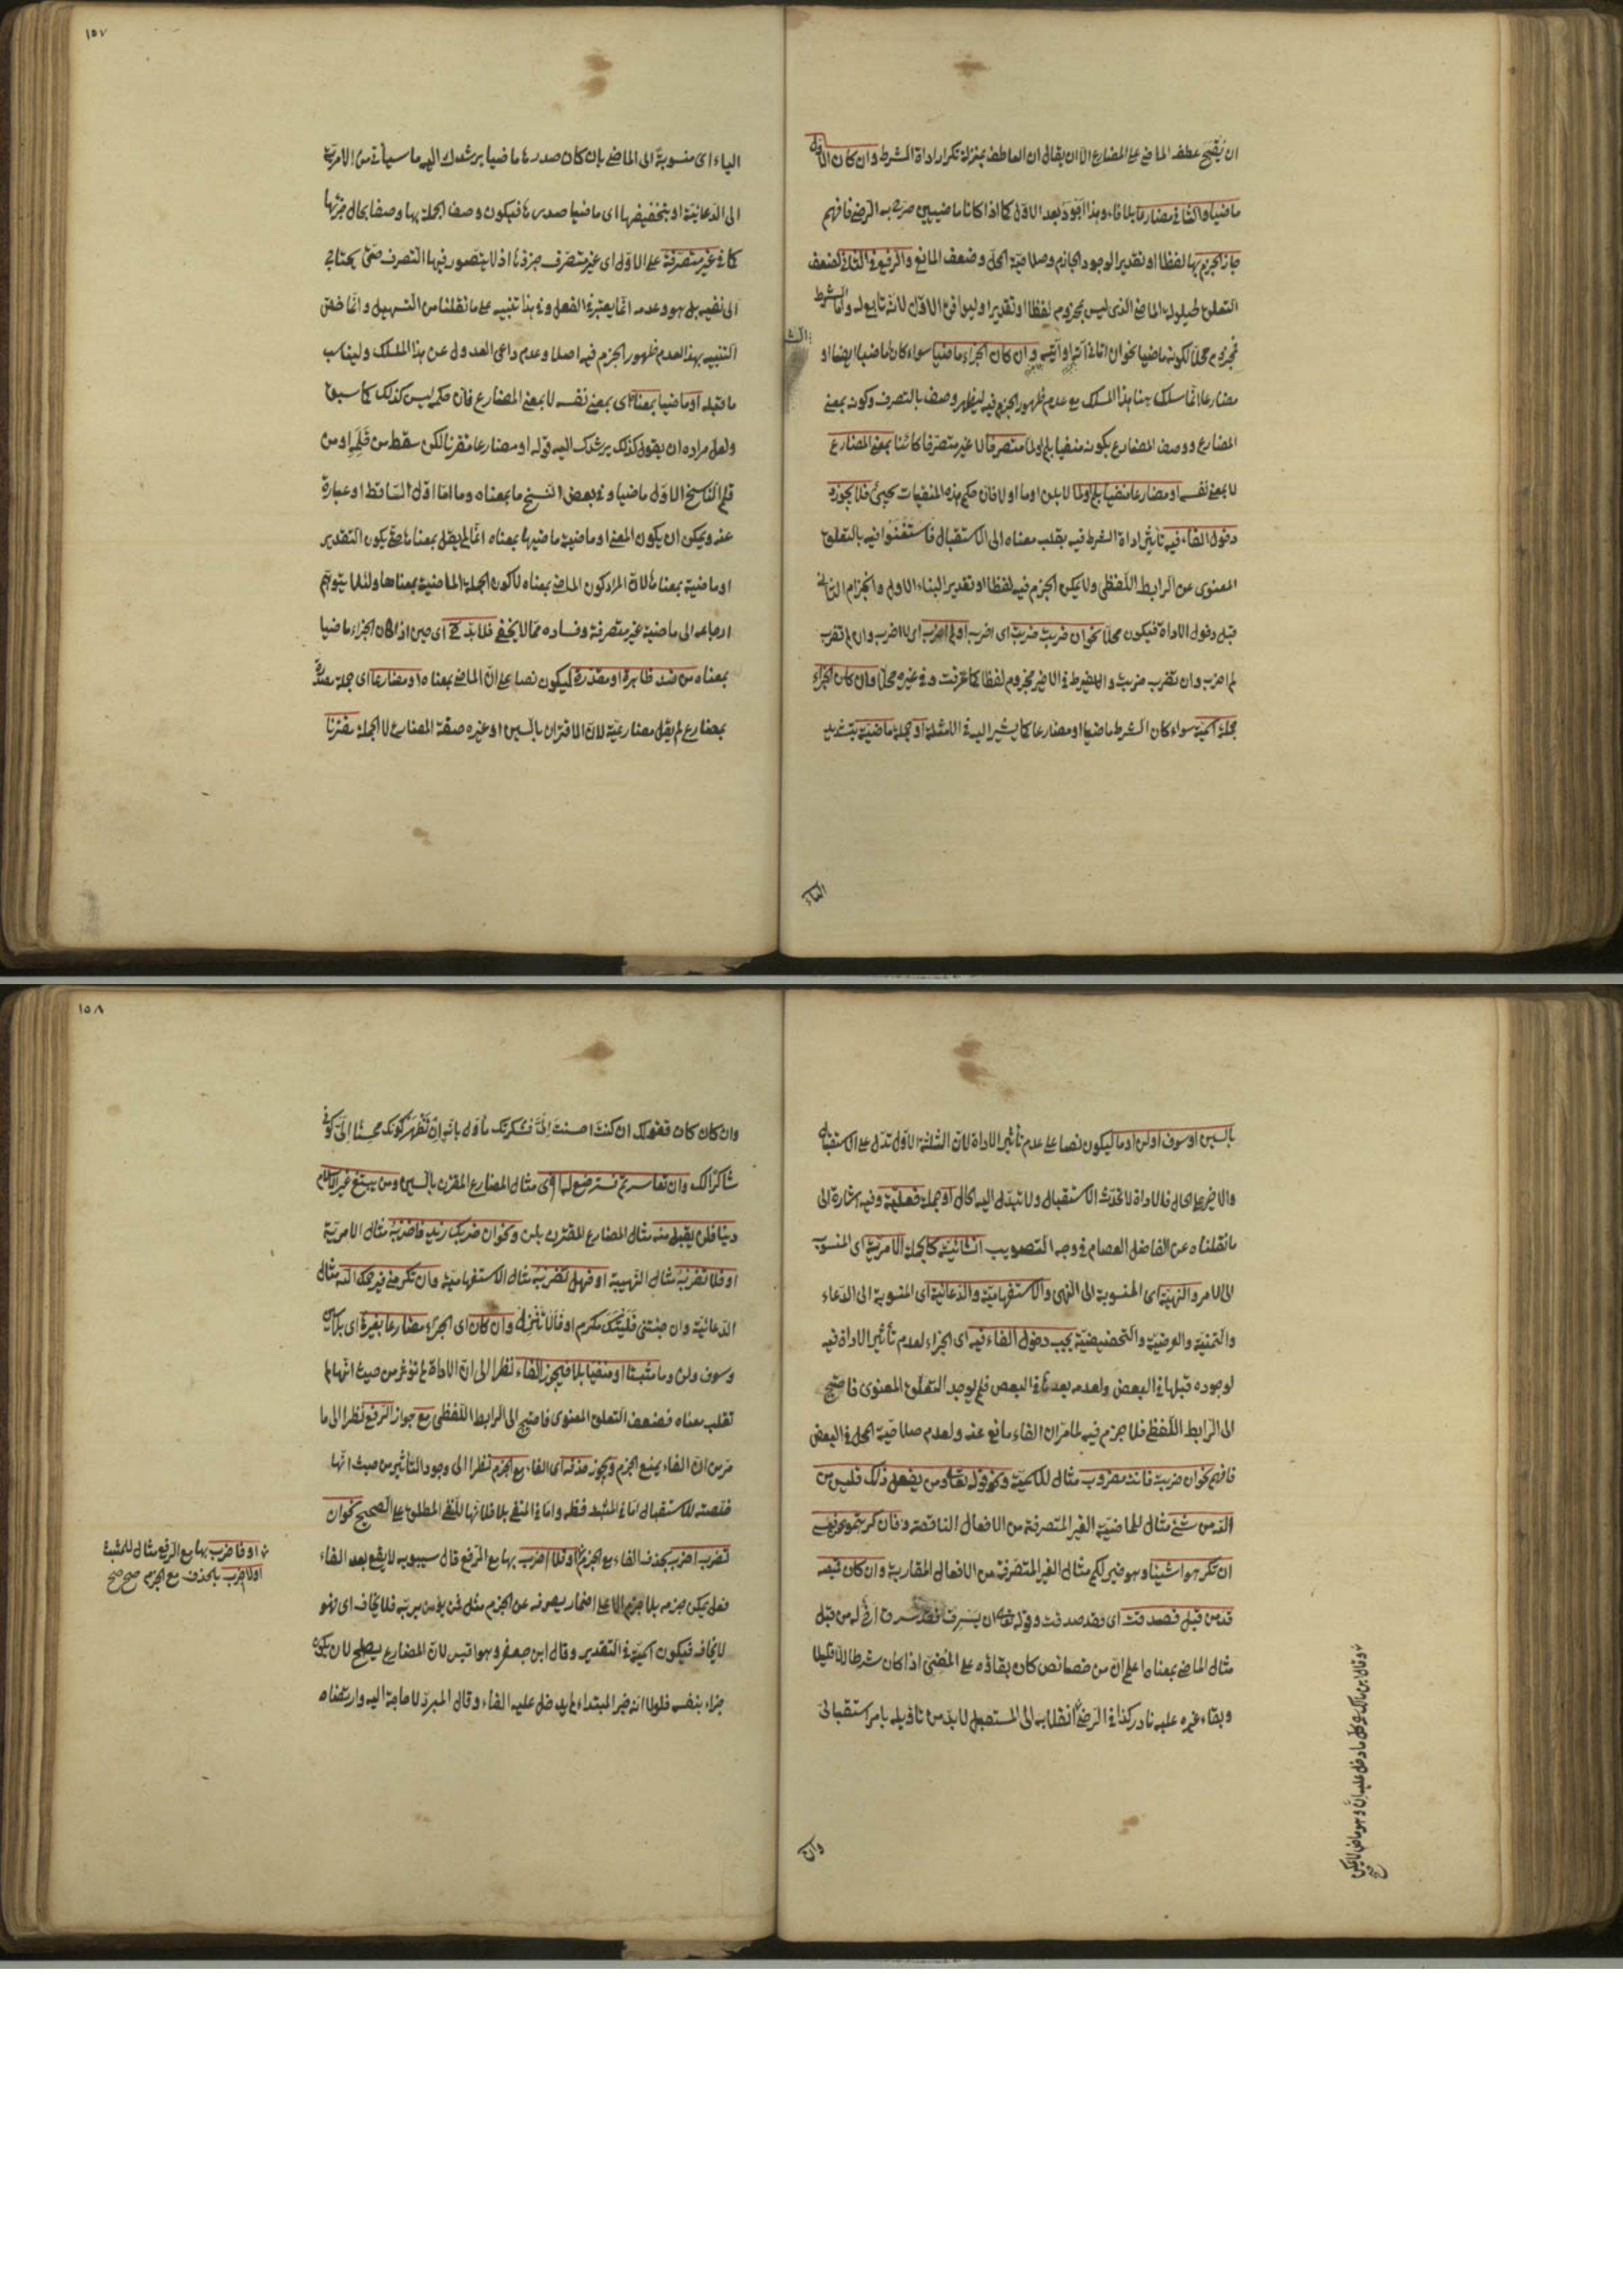 ان يقبح عطف الماضي على المضارع الا ان يقال ان العاطف بمنزلة تكرار اداة الشرط وان كان الاول
ماضيا والثاني مضارعا بلا فاء وبدا لجود بعد الاول كما اذا كانا ماضيين صرح به الرضي فافهم
جاز الجزم بها لفظا او تقديرا لوجود الجازم وصلاحية المحل وضعف المانع والرفع في الثاني لضعف
التعلق لحيلولة الماضي الذي ليس بمجزوم لفظا او تقديرا وليوافق الاول لانه تابع له واما الشرط
فمجزوم محلا لكونه ماضيا نحو ان اتاني آته او آتيه وان كان الجزاء ماضيا سواء كان ماضيا ايضا او
مضارعا انما سلك هنا هذا المسلك مع عدم ظهور الجزم فيه ليظهر وصفه بالتصرف وكونه بمعنى
المضارع ووصف المضارع بكونه منفيا بلم او لما متصرفا لا غير متصرفا كائنا بمعنى المضارع
لا بمعنى نفسه او مضارعا منفيا بلم او لما لا بلن او ما او لا فان حكم هذه المنفيات يجيء فلا يجوز
دخول الفاء فيه تأثير اداة الشرط فيه بقلب معناه الى الاستقبال فاستغنوا فيه بالتعلق
المعنوي عن الرابط اللفظي ولا يمكن الجزم فيه لفظا او تقديرا لبناء الاول وانجزام الثاني
قبل دخول الاداة فيكون محلا نحو ان ضربت ضربت اى اضرب او لم اضرب اى لا اضرب وان لم تضرب
لم اضرب وان تضرب ضربت والشرط في الاخير مجزوم لفظا كما عرفت وفي غيره محلا وان كان الجزاء
جملة اسمية سواء كان الشرط ماضيا او مضارعا كما يشير اليه في الامثلة او جملة ماضية بتشديد
الياء
١٥٧
الياء اى منسوبة الى الماضي بان كان صدرها ماضيا يرشدك اليه ما سيأتي من الامرية
الى الدعائية او بتخفيفها اى ماضيا صدرها فيكون وصف الجملة بها وصفا بحال جزئها
كما في غير متصرفة على الاول اى غير متصرف جزؤها اذ لا يتصور فيها التصرف حتى يحتاج
الى نفيه بل هو وعدمه انما يعتبر في الفعل وفي هذا تنبيه على ما نقلنا من التسهيل وانما خص
التنبيه بهذا لعدم ظهور الجزم فيه اصلا وعدم داعي العدول عن هذا المسلك وليناسب
ما قبله او ماضيا بمعناه اى بمعنى نفسه لا بمعنى المضارع فان حكمه ليس كذلك كما سبق
ولعل مراده ان يقول كذلك يرشدك اليه قوله او مضارعا مقرنا لكن سقط من قلمه او من
قلم الناسخ الاول ماضيا وفي بعض النسخ ما بمعناه وما اما اول الساقط او عبارة
عنه ويمكن ان يكون المعنى او ماضية ماضيها بمعناه انما لم يقل بمعناها حتى يكون التقدير
او ماضية بمعناها لان المراد كون الماضي بمعناه لا كون الجملة الماضية بمعناها ولئلا يتوهم
ارجاعه الى ماضية غير متصرفة وفساده مما لا يخفى فلا بد ح اى حين اذ كان الجزاء ماضيا
بمعناه من قد ظاهرة او مقدرة ليكون نصا على ان الماضي بمعناه او مضارعا اى جملة مصدرة
بمضارع لم يقل مضارعية لان الاقتران بالسين او غيره صفة المضارع لا الجملة مقترنا
بالسين او سوف او لن او ما ليكون نصا على عدم تأثير الاداة لان الثلثة الاول تدل على الاستقبال
والاخير على الحال فالاداة لا تحدث الاستقبال ولا تبدل اليه الحال او جملة فعلية وفيه اشارة الى
ما نقلناه عن الفاضل العصام في وجه التصويب انشائية كالجملة الامرية اى المنسوبة
الى الامر والنهية اى المنسوبة الى النهى والاستفهامية والدعائية اى المنسوبة الى الدعاء
والتمنية والعرضية والتحضيضية يجب دخول الفاء فيه اى الجزاء لعدم تأثير الاداة فيه
لوجوده قبلها في البعض ولعدمه بعدها في البعض فلم يوجد التعلق المعنوي فاحتيج
الى الرابط اللفظي فلا جزم فيه لما مر ان الفاء مانع عنه ولعدم صلاحية المحل في البعض
فافهم نحو ان ضربت فانت مضروب مثال للاسمية ونحو قوله تعالى ومن يفعل ذلك فليس من
الله من شيء مثال للماضية الغير المتصرفة من الافعال الناقصة وفان كرهتموهن فعسى
ان تكرهوا شيئا وهو خير لكم مثال الغير المتصرفة من الافعال المقاربة وان كان قميصه
قد من قبل فصدقت اى فقد صدقت وقوله تعالى ان يسرق فقد سرق اخ له من قبل
مثال الماضي بمعناه اعلم ان من خصائص كان بقاؤه على المضي اذا كان شرطا الا قليلا
وبقاء غيره عليه نادر كذا في الرضي انقلابه الى المستقبل لا بد من تأويله بامر استقبالي
وقال ابن مالك وكل ما دخل عليه ان وهو ماض لا يمكن
صح
وان
١٥٨
وان كان كان فقولك ان كنت احسنت الي فشكرتك مأول بانه ان تظهر كونك محسنا الي كوني
شاكرا لك وان تعاسرتم فسترضع لها اخرى مثال المضارع المقترن بالسين ومن يبتغ غير الاسلام
دينا فلن يقبل منه مثال المضارع المقترن بلن ونحو ان ضربك زيد فاضربه مثال الامرية
او فلا تضربه مثال النهيية او فهل تضربه مثال الاستفهامية وان تكرمني فيرحمك الله مثال
الدعائية وان جئتني فليتك مكرم او فالا تنزل وان كان اى الجزاء مضارعا بغيرها اى بلا سين
وسوف ولن وما مثبتا او منفيا بلا فيجوز الفاء نظرا الى ان الاداة لم تؤثر من حيث انها لم
تقلب معناه فضعف التعلق المعنوي فاحتيج الى الرابط اللفظي مع جواز الرفع نظرا الى ما
مر من ان الفاء يمنع الجزم ويجوز حذفه اى الفاء مع الجزم نظرا الى وجود التأثير من حيث انها
خلصته للاستقبال اما في المثبت فظ واما في المنفي بلا فلانها للنفي المطلق على الصحيح نحو ان
تضرب اضرب بحذف الفاء مع الجزم او فلا اضرب بها مع الرفع قال سيبويه لا يقع بعد الفاء
فعل يمكن جزمه بلا جزم الا على اضمار يصرفه عن الجزم مثل فمن يؤمن بربه فلا يخاف اى فهو
لا يخاف فيكون اسمية في التقدير وقال ابن جعفر وهو اقيس لان المضارع يصلح لان يكون
جزاء بنفسه فلولا انه خبر المبتداء لم يدخل عليه الفاء وقال المبرد لا حاجة اليه وارتضاه
او فاضرب بها مع الرفع مثال للمثبت
او لا اضرب بالحذف مع الجزم صح صح